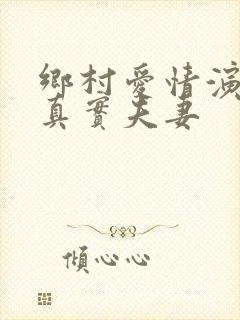 鄉村愛情演
真實夫妻
傾心心